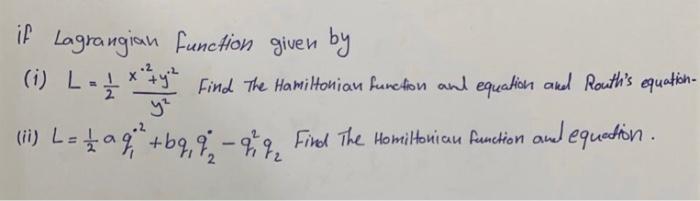 if Lagrangian function given by
(i) L = 1/2 (ẋ² + ẏ²)/y² Find The Hamiltonian function and equation and Routh's equation.
(ii) L = 1/2 a q̇₁² + b q₁ q̇₂ - q₁² q₂ Find The Homiltonian function and equation.